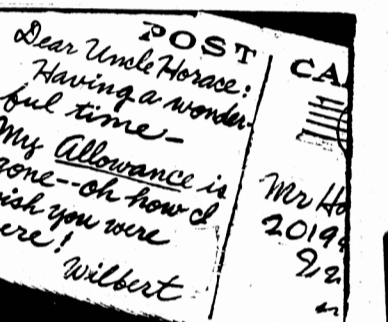 POST
Dear Uncle Horace:
Having a wonder-
ful time—
My Allowance is
gone--oh how I
wish you were
here!
Wilbert
Mr